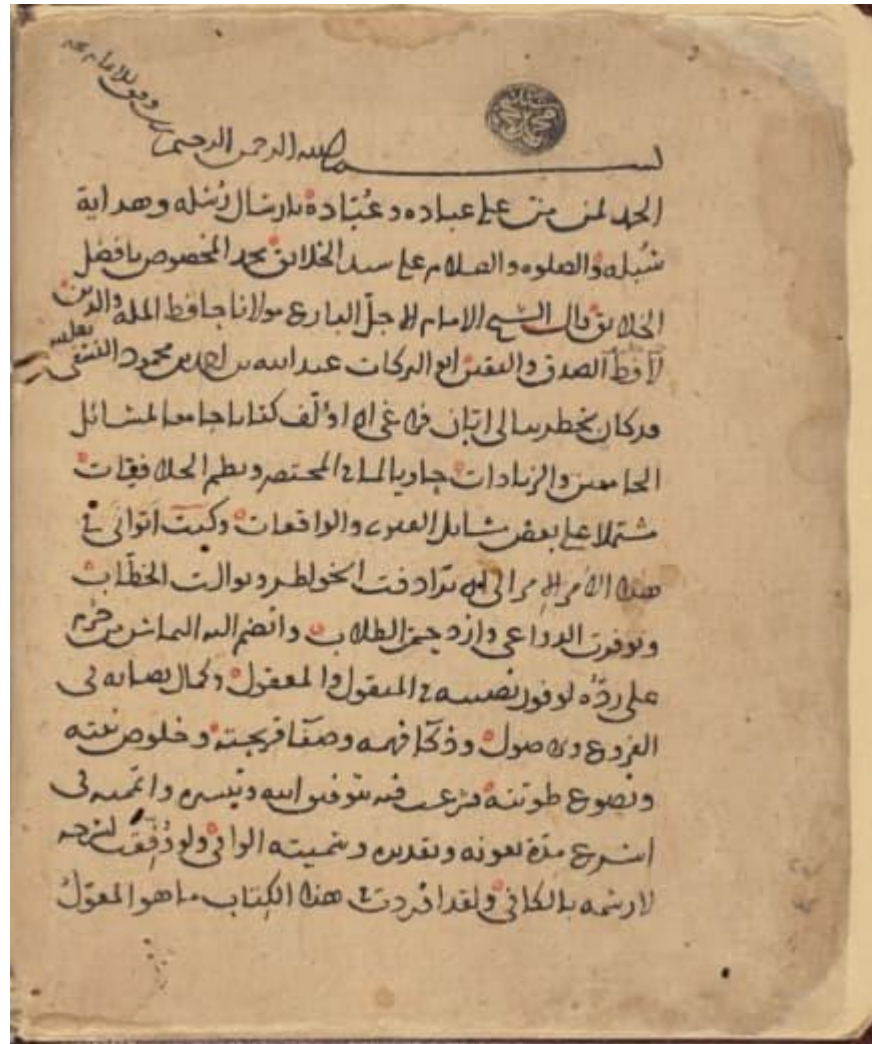 بسم الله الرحمن الرحيم
الحمد لمن من على عباده وعُبّاده بارسال رُسُله وهداية
سُبله والصلوه والسلام على سيد الخلائق محمد المخصوص بافضل
الخلائق قال الشيخ الامام الاجلّ البارع مولانا حافظ المله والدين
لافظ الصدق واليقين ابو البركات عبد الله بن احمد بن محمود النسفى
قد كان يخطر ببالى ابّان فراغى ان اؤلّف كتابا جامعا لمسائل
الجامعين والزيادات حاويا لما فى المختصر ونظم الخلافيات
مشتملا على بعض مسائل الفتوى والواقعات وكنت اتوانى فى
هذا الأمر الامر الى ان ترادفت الخواطر وتوالت الخطّاب
وتوفرت الدواعى وازدحم الطلاب وانضم اليه التماس من
على ردّه لوفور نصيبه فى المنقول والمعقول وكمال نصابه فى
الفروع والاصول وذكا فهمه وصفا قريحته وخلوص نيته
ونصوع طويته فشرعت فيه بتوفيق الله وتيسيره واتممته فى
اسرع مدّة بعونه وتقديره وسميته الوافى ولو وُفِّقت لشرحه
لارسمه بالكافى ولقد افردت فى هذا الكتاب ما هو المعوّلُ